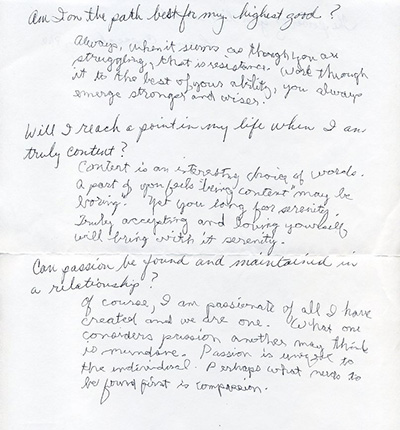 Am I on the path best for my highest good?
Always, when it seems as though you are
struggling, that is resistance. Work through
it to the best of your ability, you always
emerge stronger and wiser.
Will I reach a point in my life when I am
truly content?
Content is an interesting choice of words.
A part of you feels "being content" may be
boring. Yet you long for serenity.
Truly accepting and loving yourself
will bring with it serenity.
Can passion be found and maintained in
a relationship?
Of course, I am passionate of all I have
created and we are one. What one
considers passion another may think
is mundane. Passion is unique to
the individual. Perhaps what needs to
be found first is compassion.